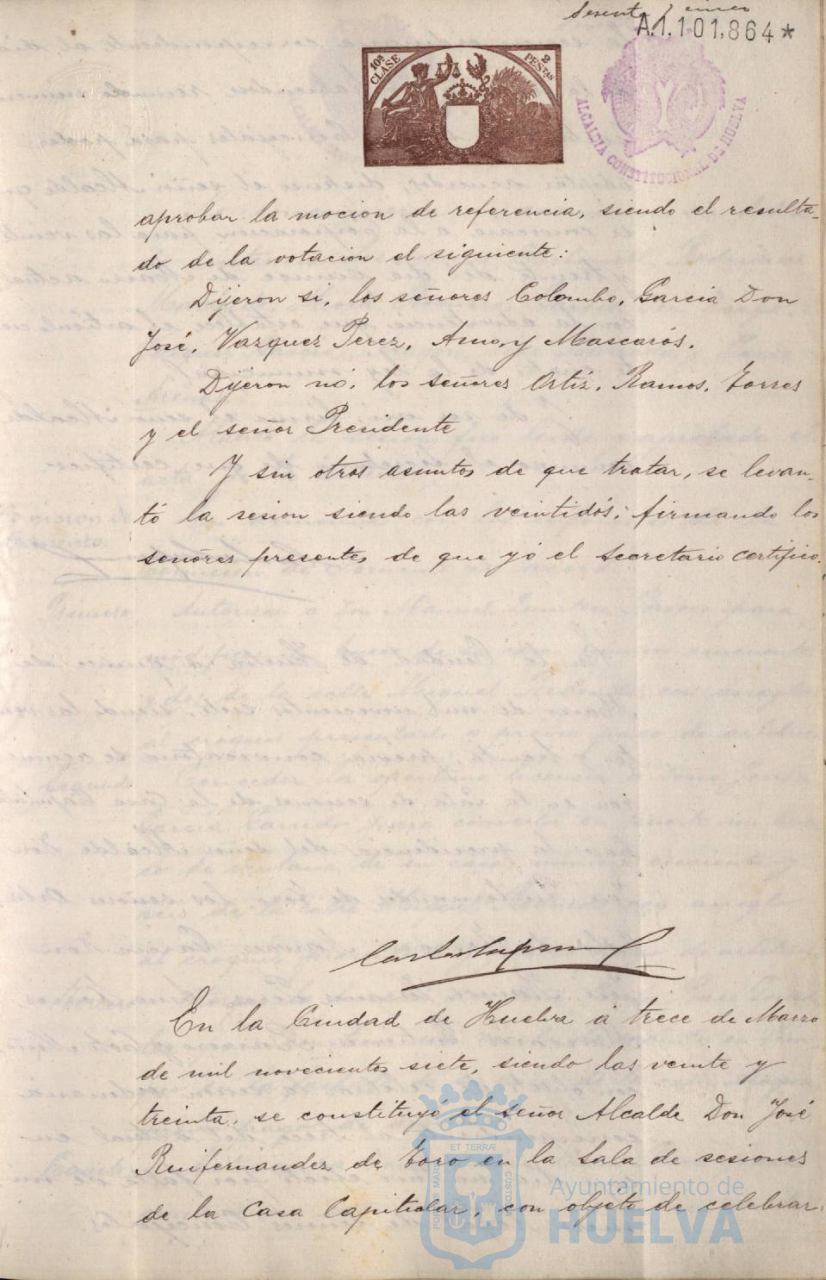 Sesenta y cinco
A.1.101.864*
10ª CLASE
2 PESTAS
ALCALDIA CONSTITUCIONAL DE HUELVA
aprobar la mocion de referencia, siendo el resulta-
do de la votacion el siguiente:
Dijeron si, los señores Colombo, Garcia Don
José, Vazquez Perez, Amo, y Mascarós.
Dijeron nó, los señores Ortiz, Ramos, Torres
y el señor Presidente
Y sin otros asuntos de que tratar, se levan-
tó la sesion siendo las veintidós; firmando los
señores presentes, de que yó el secretario certifico.
En la Ciudad de Huelva á trece de Marzo
de mil novecientos siete, siendo las veinte y
treinta, se constituyó el señor Alcalde Don José
Ruifernandez de Toro en la Sala de sesiones
de la Casa Capitular, con objeto de celebrar
ET TERRÆ
Ayuntamiento de
HUELVA